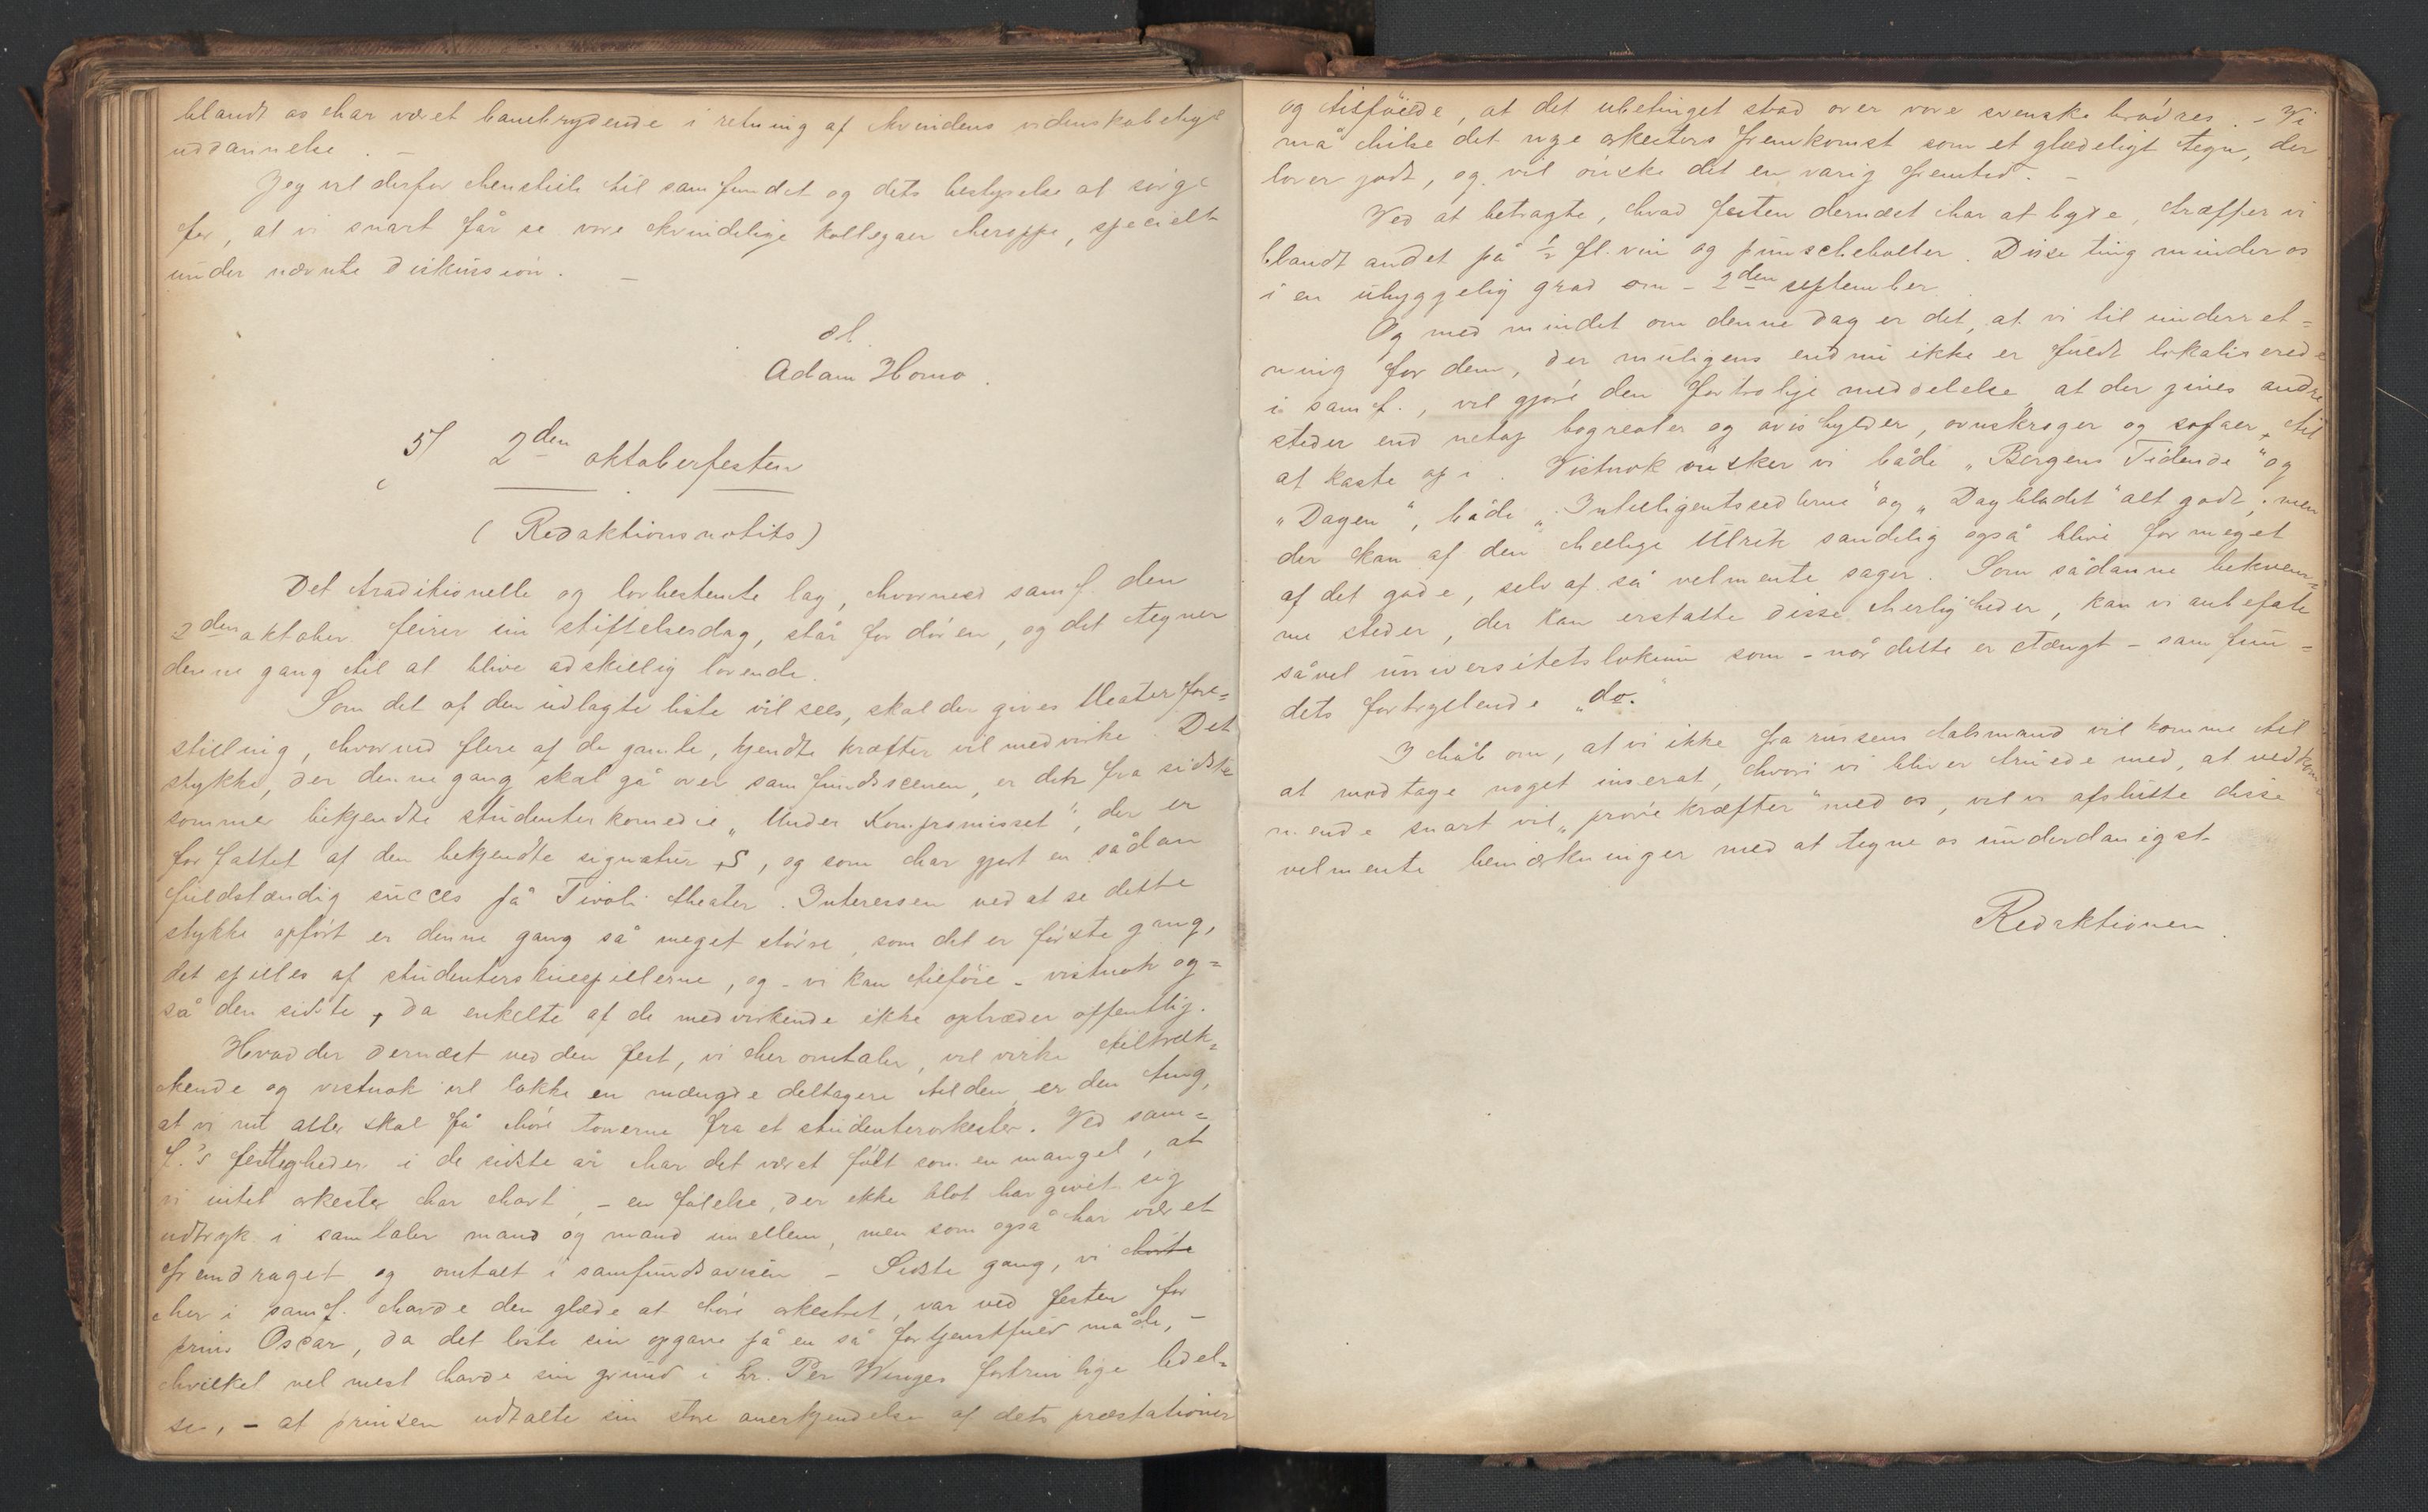 blandt os har været banebrydende i retning af kvindens videnskabelige
uddannelse. –
Jeg vil derfor henstille til samfundet og dets bestyrelse at sørge
for, at vi snart får se vore kvindelige kollegaer heroppe, specielt
under nævnte diskussion. –
Adam Homo.
5/ 2den oktoberfesten
(Redaktionsnotits)
Det traditionelle og lovbestemte lag, hvormed samf. den
2den oktober feirer sin stiftelsesdag, står for døren, og det tegner
denne gang til at blive adskillig lovende.
Som det af den udlagte liste vil sees, skal der gives theaterfore=
stilling, hvorved flere af de gamle, kjendte kræfter vil medvirke. Det
stykke, der denne gang skal gå over samfundsscenen, er det fra sidste
sommer bekjendte studenterkomedie „Under Kompromisset", der er
forfattet af den bekjendte signatur S, og som har gjort en sådan
fuldstændig succes på Tivoli theater. Interessen ved at se dette
stykke opført er denne gang så meget større, som det er første gang,
det spilles af studenterskuespillerne, og – vi kan tilføie – vistnok og=
så den sidste, da enkelte af de medvirkende ikke optræder offentlig.
Hvad der dernæst ved den fest, vi her omtaler, vil virke tiltræk=
kende og vistnok vil lokke en mængde deltagere til den, er den ting,
at vi nu alle skal få høre tonerne fra et studenterorkester. Ved sam=
f.'s festligheder i de sidste år har det været følt som en mangel, at
vi intet orkester har havt, – en følelse, der ikke blot har givet sig
udtryk i samtaler mand og mand imellem, men som også har været
fremdraget og omtalt i samfundsavisen – Sidste gang, vi hørte
her i samf. havde den glæde at høre orkestret, var ved festen for
prins Oscar, da det løste sin opgave på en så fortjenstfuld måde, –
hvilket vel mest havde sin grund i hr. Per Winges fortrinlige ledel=
se, – at prinsen udtalte sin store anerkjendelse af dets præstationer
og tilføiede, at det ubetinget stod over vore svenske brødres. – Vi
må hilse det nye orkesters fremkomst som et glædeligt tegn, der
lover godt, og vil ønske det en varig fremtid. –
Ved at betragte, hvad festen dernæst har at byde, træffer vi
blandt andet på ½ fl. vin og punscheboller. Disse ting minder os
i en uhyggelig grad om – 2den september.
Og med mindet om denne dag er det, at vi til underret=
ning for dem, der muligens endnu ikke er fuldt lokaliserede
i samf., vil gjøre den fortrolige meddelelse, at der gives andre
steder end netop bogreoler og avishylder, ovnskroger og sofaer, til
at kaste op i. Vistnok ønsker vi både „Bergens Tidende" og
„Dagen", både „Intelligentssedlerne" og „Dagbladet" alt godt; men
der kan af den hellige Ulrik sandelig også blive for meget
af det gode, selv af så velmente sager. Som sådanne bekvem=
me steder, der kan erstatte disse herligheder, kan vi anbefale
såvel universitetslokum som – når dette er stængt – samfun=
dets fortryllende „do."
I håb om, at vi ikke fra russens talsmand vil komme til
at modtage noget inserat, hvori vi bliver truede med, at vedkom=
mende snart vil „prøve kræfter" med os, vil vi afslutte disse
velmente bemærkninger med at tegne os underdanigst
Redaktionen.